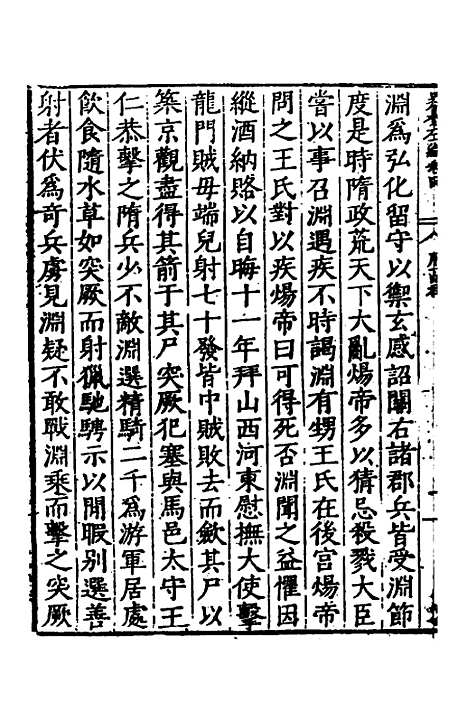 淵爲弘化留守以禦玄感詔關右諸郡兵皆受淵節
度是時隋政荒天下大亂煬帝多以猜忌殺戮大臣
嘗以事召淵遇疾不時謁淵有甥王氏在後宮煬帝
問之王氏對以疾煬帝曰可得死否淵聞之益懼因
縱酒納賂以自晦十一年拜山西河東慰撫大使擊
龍門賊毋端兒射七十發皆中賊敗去而斂其尸以
築京觀盡得其箭于其尸突厥犯塞與馬邑太守王
仁恭擊之隋兵少不敵淵選精騎二千爲游軍居處
飲食隨水草如突厥而射獵馳騁示以閒暇别選善
射者伏爲奇兵虜見淵疑不敢戰淵乘而擊之突厥